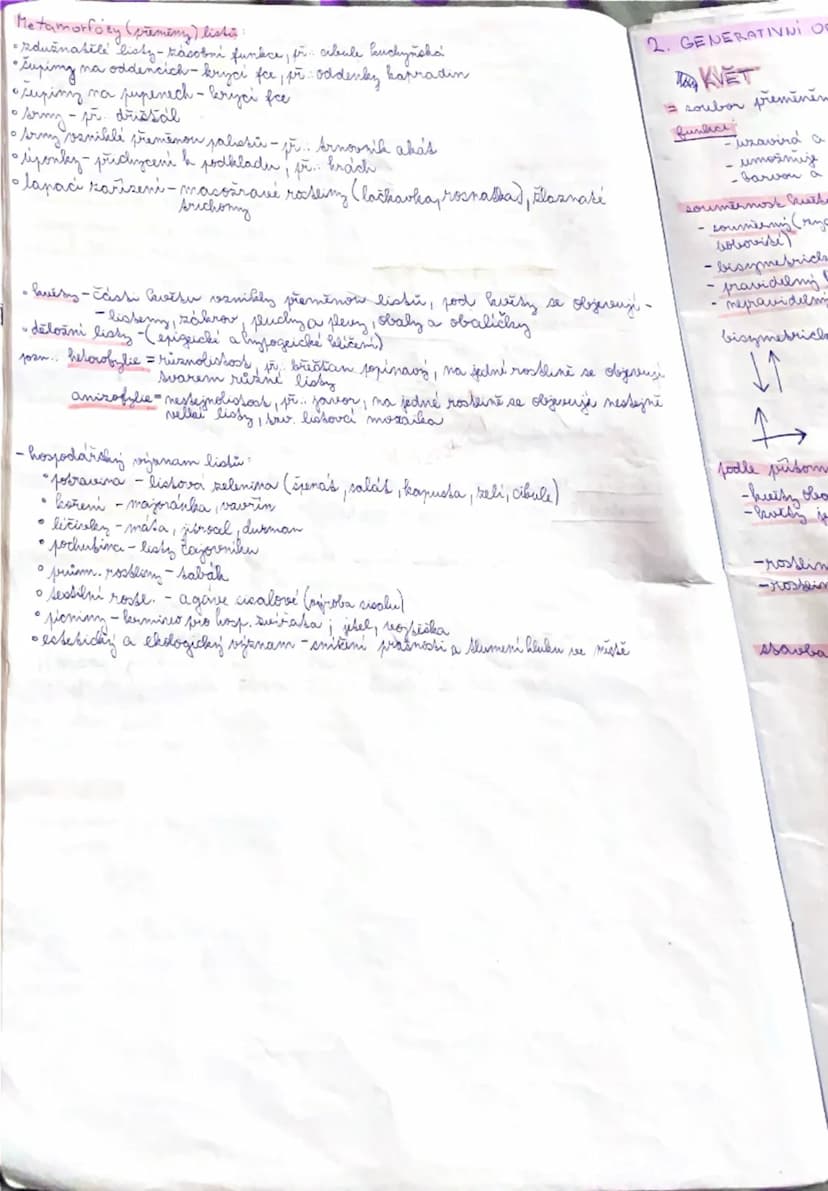 Metamorfózy (přeměny) listů:
• zdužnatělé listy - zásobní funkce, př.. cibule kuchyňská
• šupiny na oddencích - krycí fce, př.. oddenky kapradin
• šupiny na pupenech - krycí fce
• trny - př.. dřišťál
• trny vzniklé přeměnou palistů - př.. trnovník akát
• úponky - přichycení k podkladu, př.. hrách
• lapací zařízení - masožravé rostliny (láčkovka, rosnatka), žláznaté
trichomy
• květy - části květu vznikly přeměnou listů, pod květy se objevují -
- listeny, zákrov, pluchy a plevy, obaly a obalíčky
• děložní listy - (epigeické a hypogeické klíčení)
pozn.. heterofylie = různolistost, př.. břečťan popínavý, na jedné rostlině se objevují
tvarem různé listy
anizofylie = nestejnolistost, př.. javor, na jedné rostlině se objevuje nestejně
velké listy, tzv. listová mozaika
- hospodářský význam listů:
• potravina - listová zelenina (špenát, salát, kapusta, zelí, cibule)
• koření - majoránka, vavřín
• léčivky - máta, jitrocel, durman
• pochutina - listy čajovníku
• prům. rostliny - tabák
• textilní rostl. - agáve sisalové (výroba sisalu)
• pícniny - krmivo pro hosp. zvířata; jetel, vojtěška
• estetický a ekologický význam - snížení prašnosti a tlumení hluku ve městě
2. GENERATIVNÍ
KVĚT
= soubor
funkce:
- uzavírá a
- umožňuje
- barvou a
souměrnost
- souměrný
- pravidelný
- nepravidelný
podle
- květy
- květy
stavba